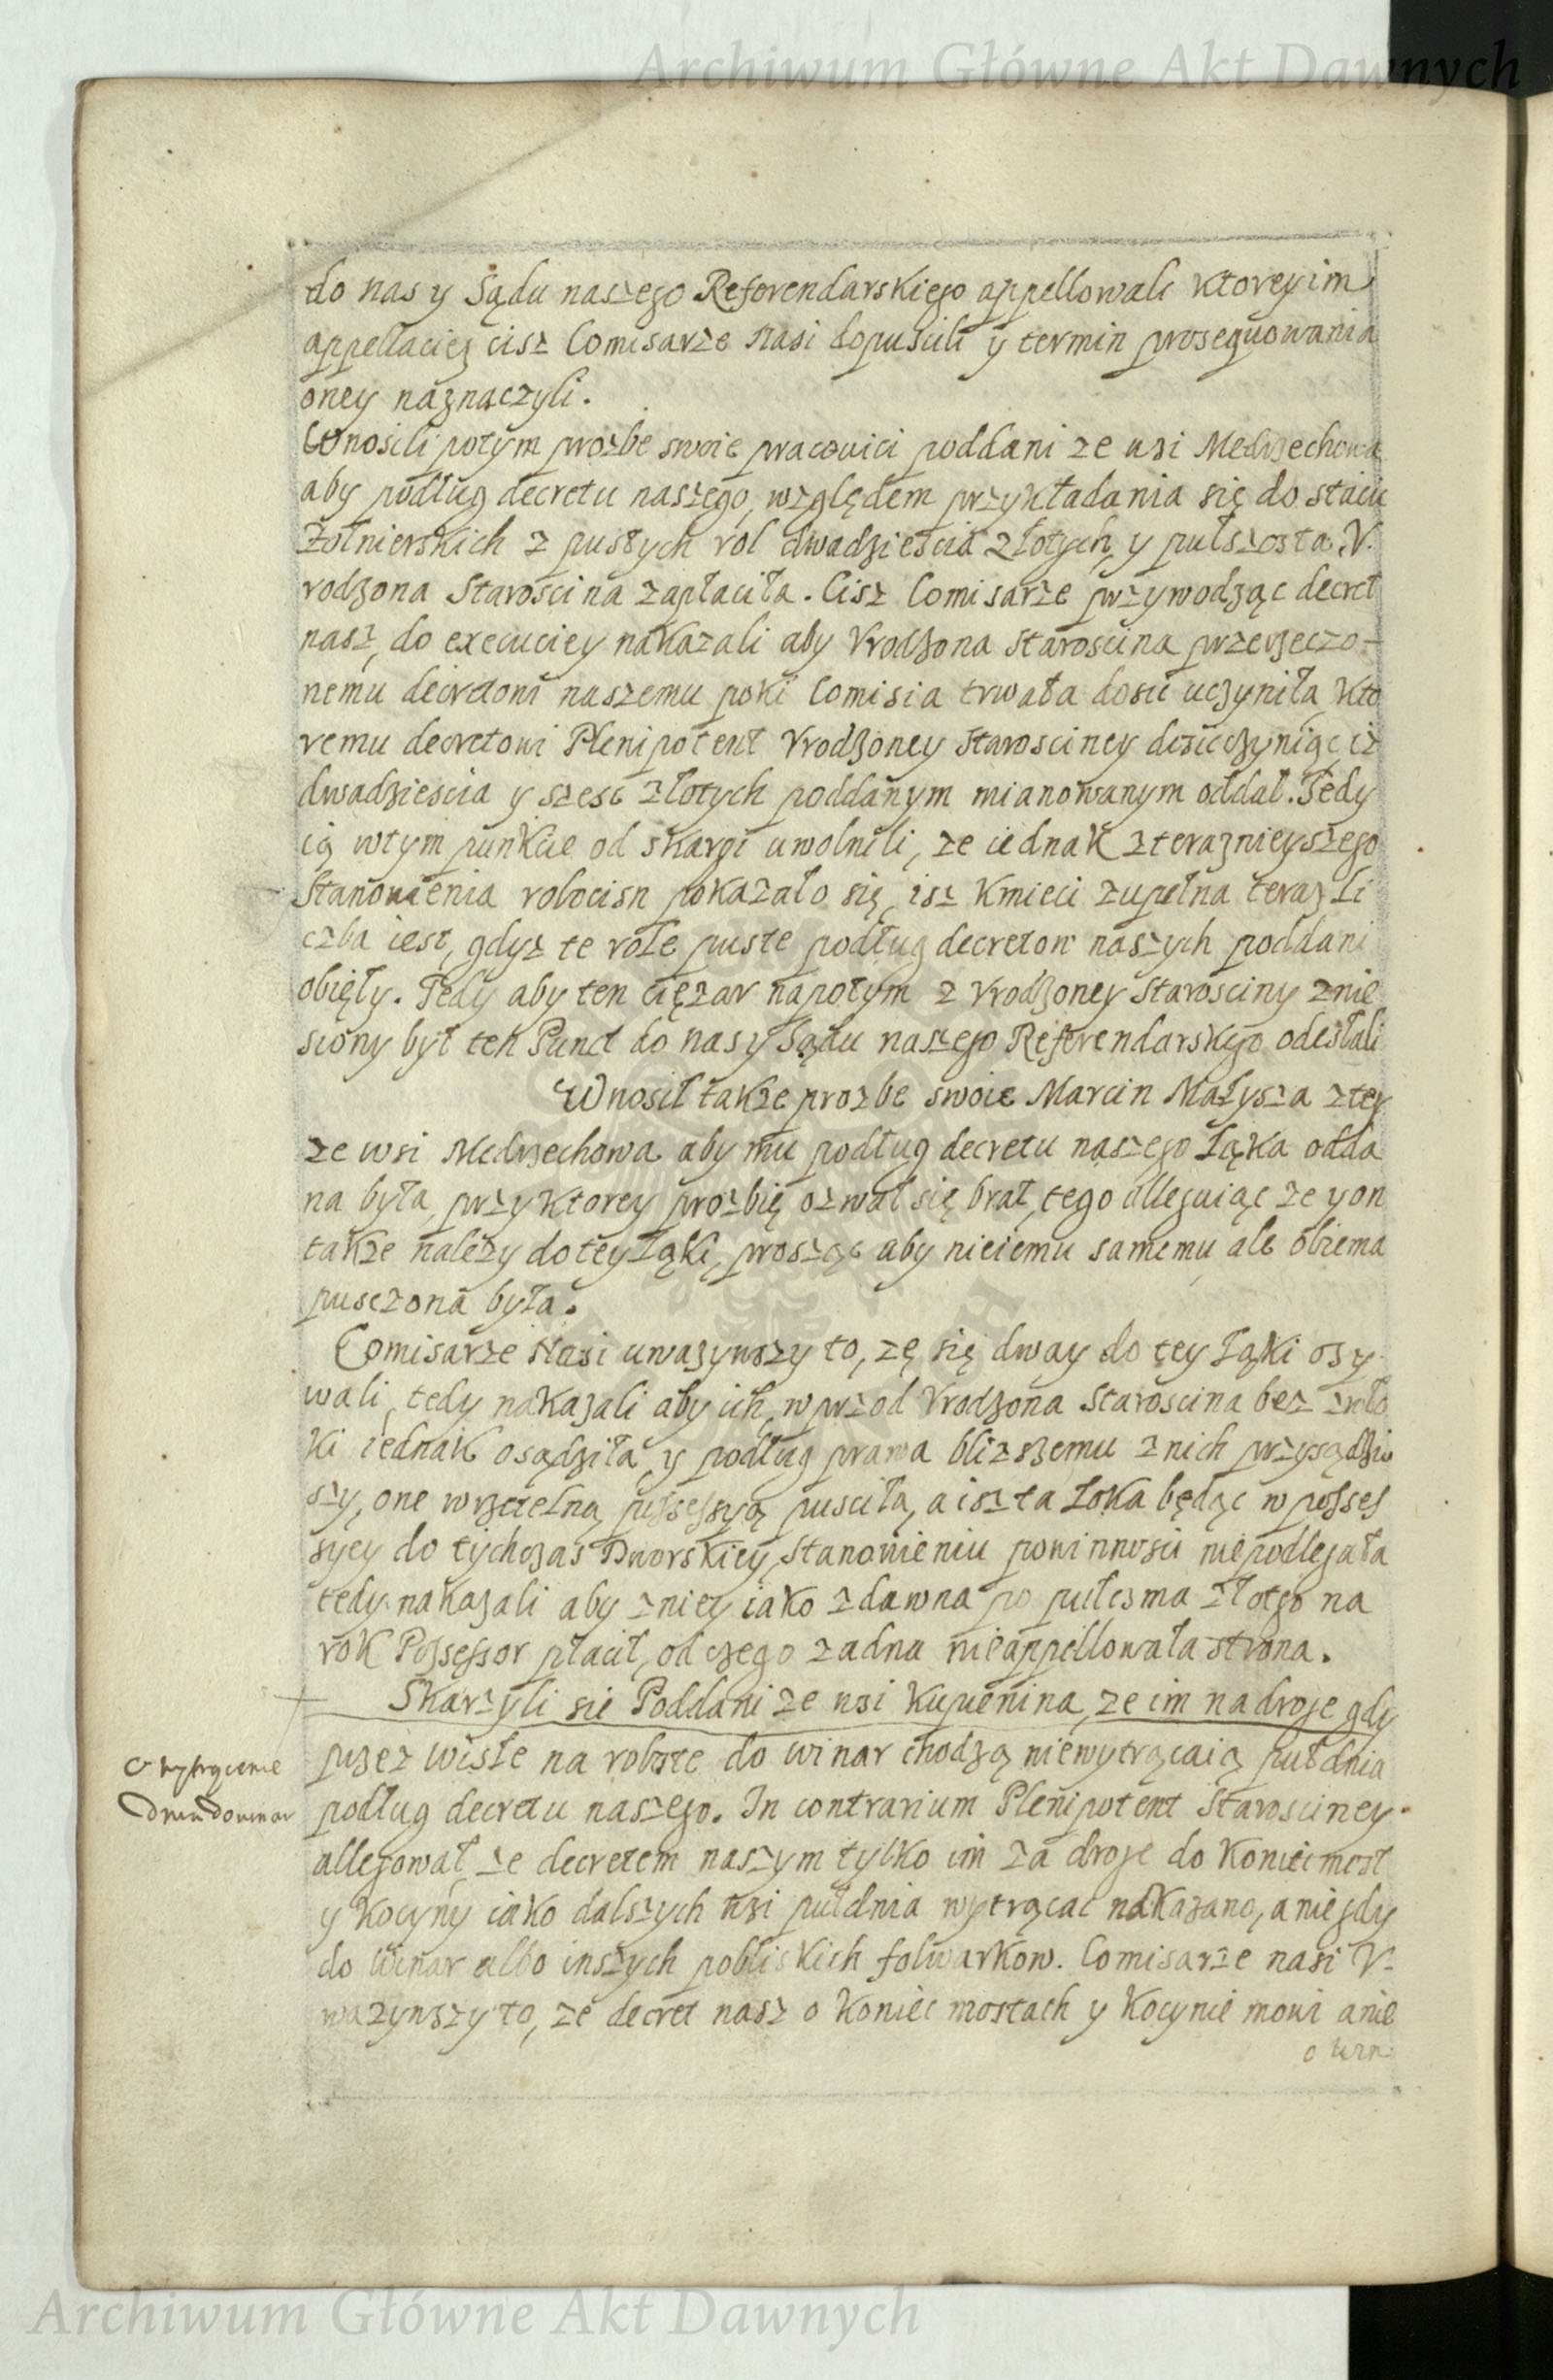 Archiwum Główne Akt Dawnych
do nas y Sądu naszego Referendarskiego appellowali ktorey im
appellaciej cisz Comisarze nasi dopuscili y termin prosequowania
oney naznaczyli.
Wnosili potym prozbe swoie pracowici poddani ze wsi Medrzechowa
aby podług decretu naszego, względem przykładania się do stacii
Zołnierskich z pustych rol dwadziescia złotych y pułszosta, V.
rodzona Staroscina zapłaciła. Cisz Comisarze przywodząc decret
nasz, do execuciey nakazali aby Vrodzona Staroscina przerzeczo-
nemu decretowi naszemu poki Comisia trwała dosic uczyniła, kto
remu decretowi Plenipotent Vrodzoney Starosciney dosic czyniąc isz
dwadziescia y szesc złotych poddanym mianowanym oddał. Tedy
ią wtym punkcie od skargi uwolnili, ze iednak z terazniejszego
Stanowienia robocisn pokazało się, isz kmieci zupełna teraz li
czba iest, gdyz te role puste podług decretow naszych poddani
obięły. Tedy aby ten ciężar napotym z Vrodzoney Starosciny znie
siony był ten Punct do nas y Sądu naszego Referendarskiego odesłali
Wnosił także prozbe swoie Marcin Małysza z tey
ze wsi Medrzechowa aby mu podług decretu naszego Łąka odda
na była, przy ktorey prozbię ozwał się brat, tego alleguiąc ze y on
także należy do tey Łąki, prosząc aby nie iemu samemu, ale obiema
pusczona była.
Comisarze Nasi uwazywszy to, zę się dway do tey Łąki ozy
wali, tedy nakazali aby ich, w przod Vrodzona Staroscina bez zwło
ki iednak osądziła, y podług prawa blizszemu z nich przysądziw
szy, one w rzetelną possessyą pusciła, a isz ta Łoka będąc w posses
syey do tychczas Dworskiey, Stanowieniu powinnosci niepodlegała
tedy nakazali aby z niey iako zdawna po pułosma złotego na
rok Possessor płacił, od czego zadna nieappellowała strona.
Skarzyli sie Poddani ze wsi Kupienina, ze im na droge gdy
przez wisłe na robote do Winar chodzą niewytrącaią pułdnia
podług decretu naszego. In contrarium Plenipotent Starosciney
allegował, ze decretem naszym tylko im za droge do Koniecmost
y Kocyny iako dalszych wsi pułdnia wytrącac nakazano, a nie gdy
do Winar albo inszych pobliskich folwarkow. Comisarze nasi V-
wazywszy to, ze decret nasz o Koniec mostach y Kocynie mowi a nie
o win
O wytrącenie
dnia do winar
Archiwum Główne Akt Dawnych